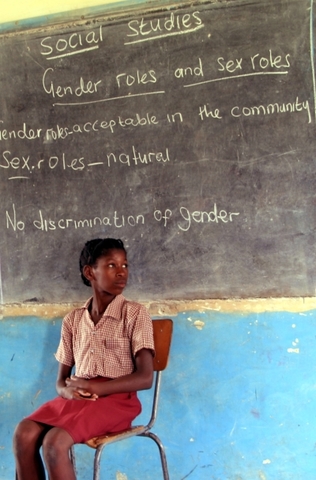 Social Studies
Gender roles and sex roles
Gender roles-acceptable in the community
Sex.roles-natural
No discrimination of gender